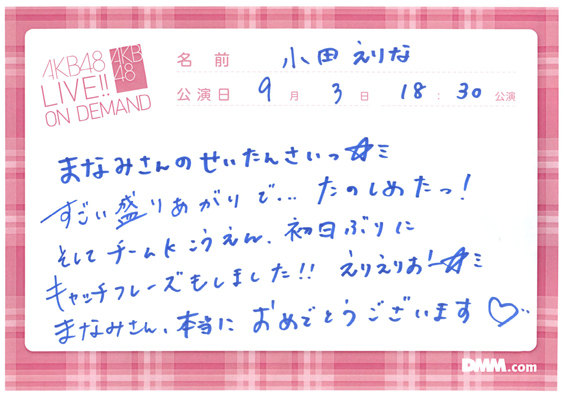 AKB48
LIVE!!
ON DEMAND
AKB
48
名前 小田えりな
公演日 9月3日 18:30公演
まなみさんのせいたんさいっ☆ミ
すごい盛りあがりで… たのしめたっ!
そしてチームKこうえん、初日ぶりに
キャッチフレーズもしました!! えりえりお!ー☆ミ
まなみさん、本当に おめでとうございます♡
DMM.com